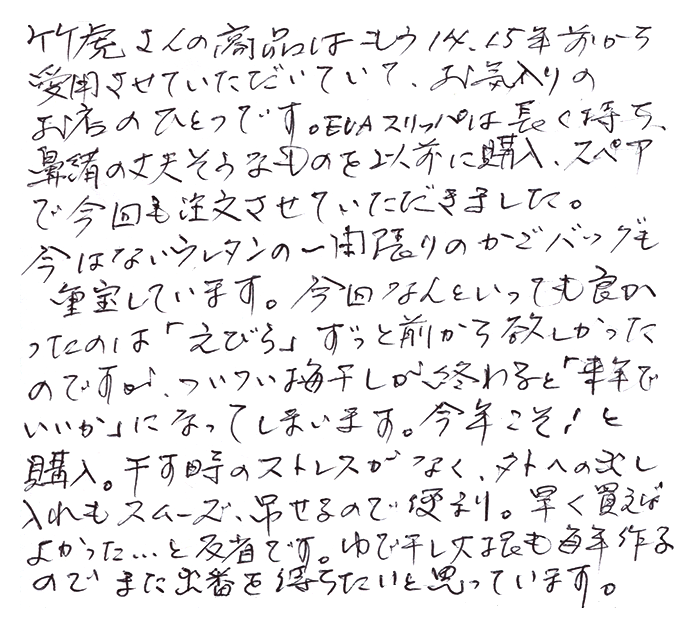 竹虎さんの商品はもう14、15年前から
愛用させていただいていて、お気入りの
お店のひとつです。EVAスリッパは長く持ち、
鼻緒の丈夫そうなものを以前に購入、スペア
で今回も注文させていただきました。
今はないウレタンの一閑張りのかごバッグも
重宝しています。今回なんといっても良か
ったのは「えびら」ずっと前から欲しかった
のですが、ついつい梅干しが終わると「来年で
いいか」になってしまいます。今年こそ!と
購入。干す時のストレスがなく、外への出し
入れもスムーズ、吊せるので便利。早く買えば
よかった…と反省です。ゆで干し大根も毎年作る
のでまた出番を待ちたいと思っています。